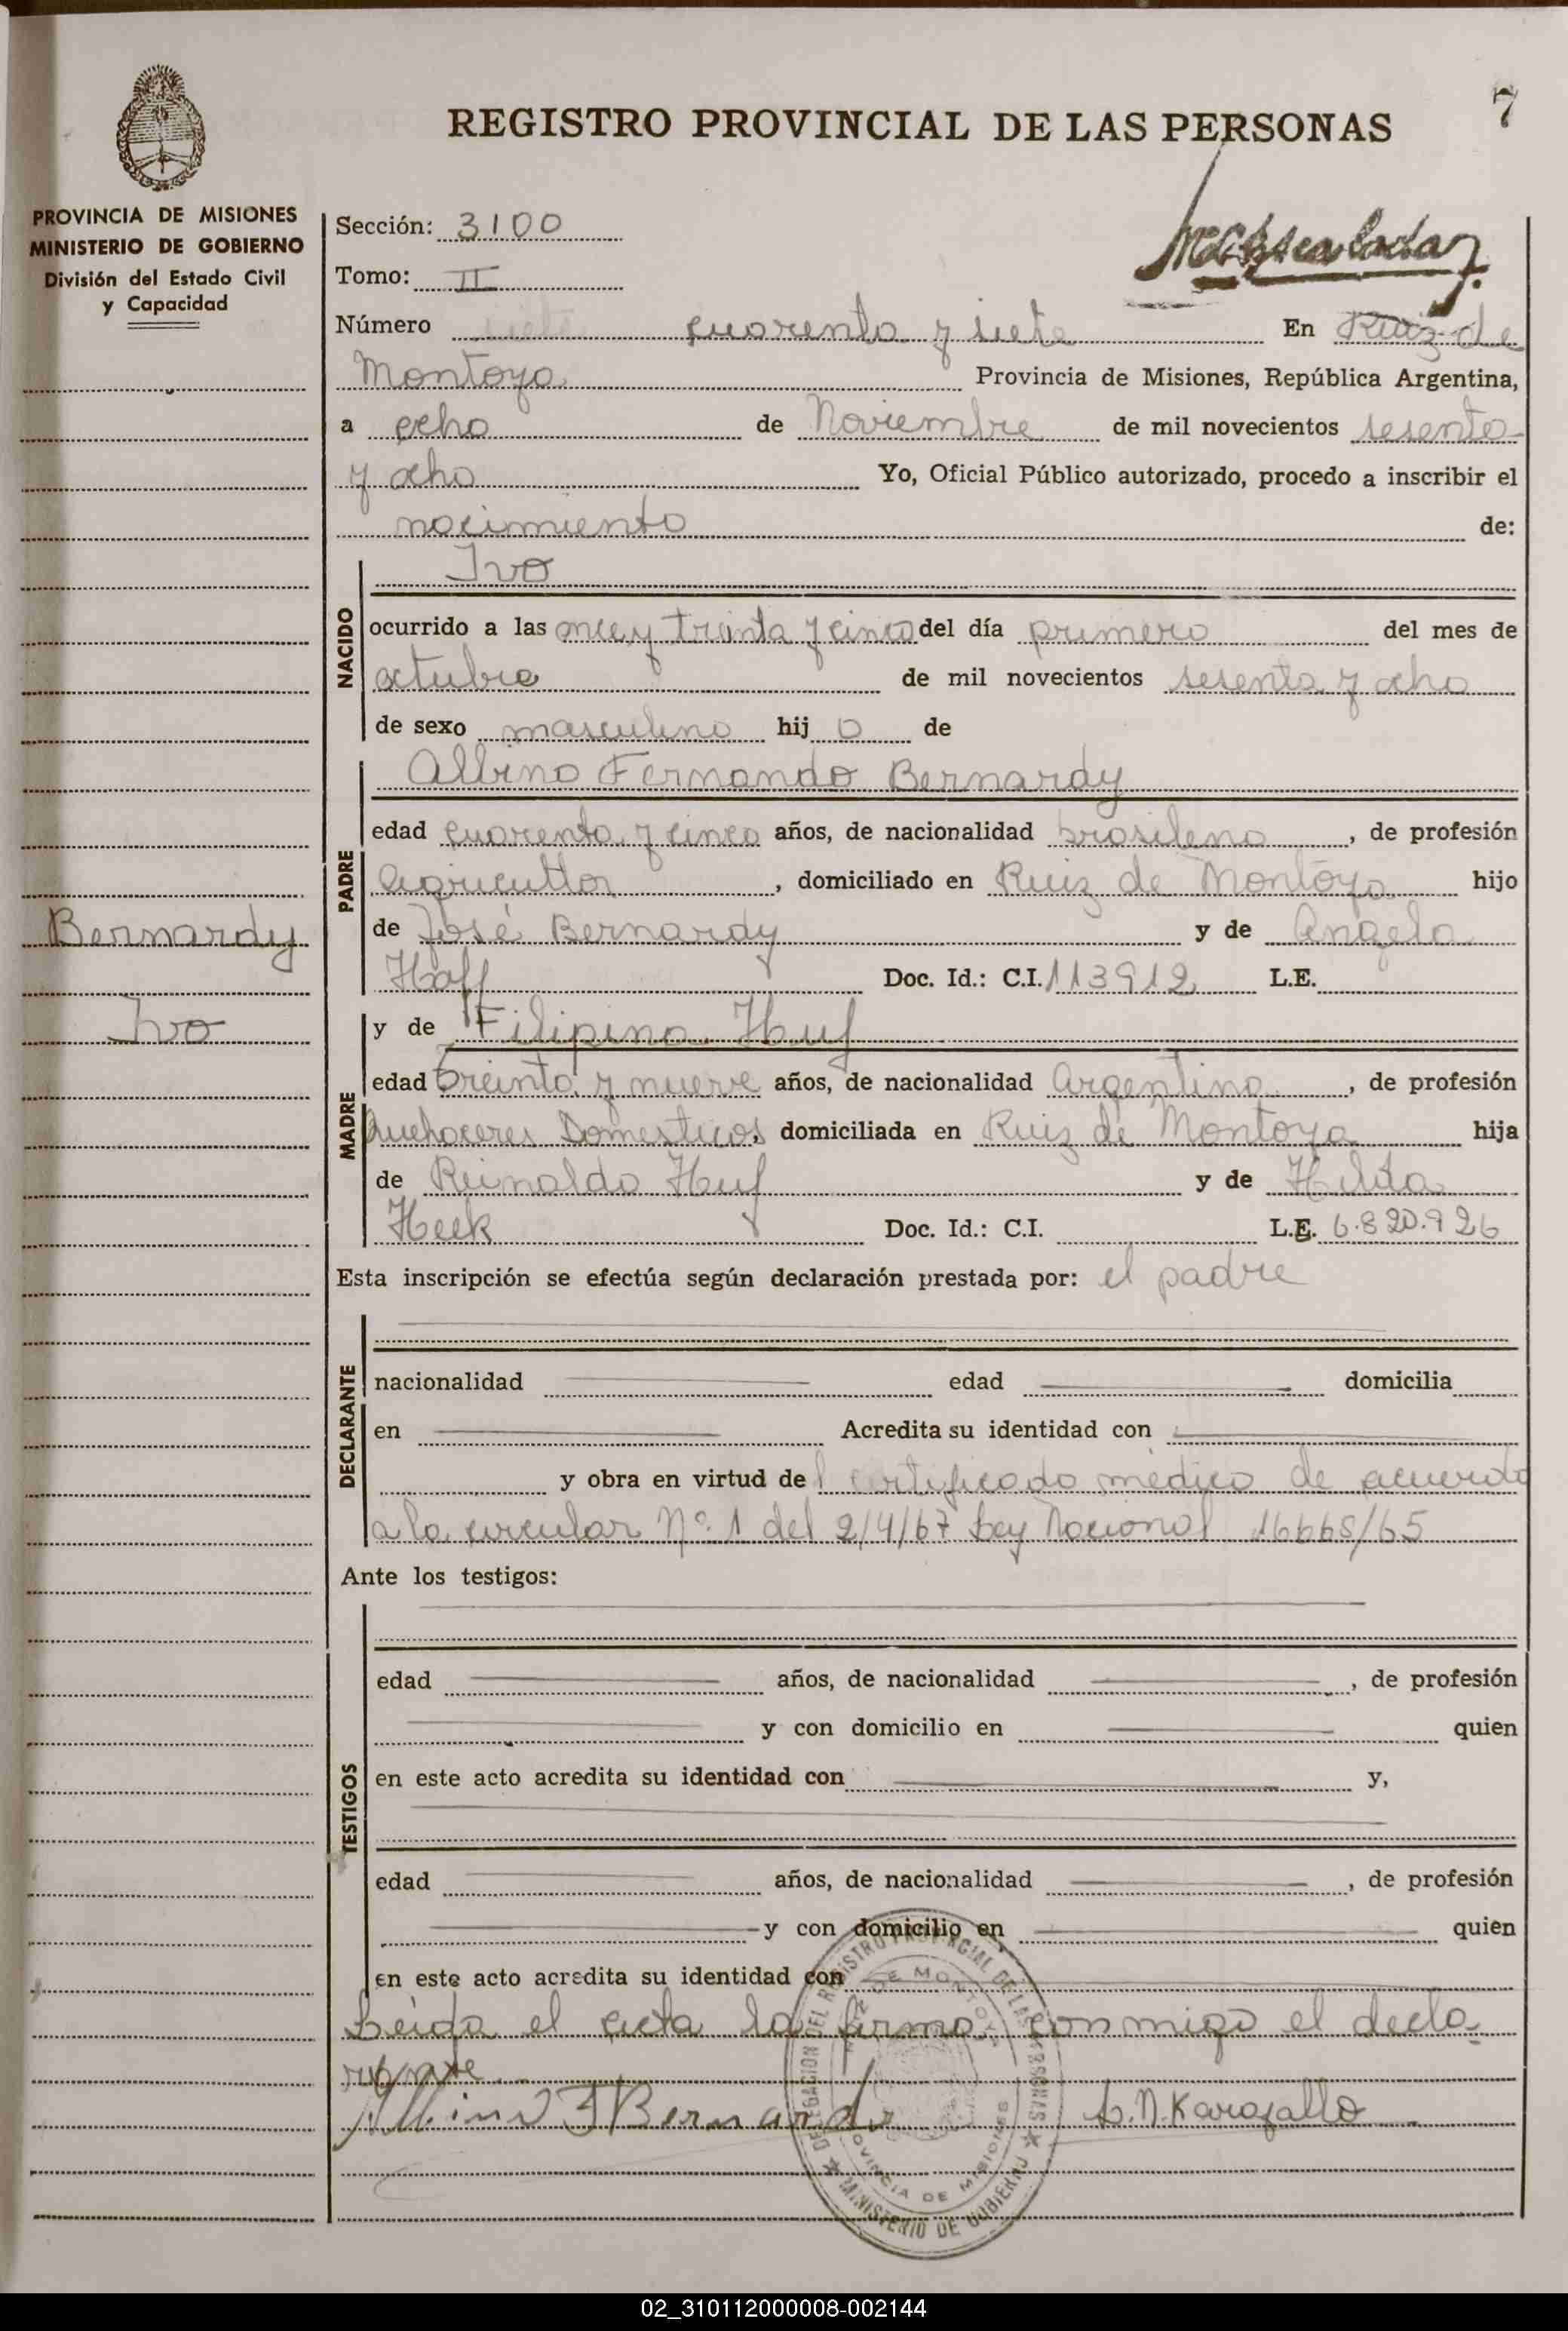 7
REGISTRO PROVINCIAL DE LAS PERSONAS
PROVINCIA DE MISIONES
MINISTERIO DE GOBIERNO
División del Estado Civil
y Capacidad
Sección: 3100
Tomo: II
Número siete cuarenta y siete En Ruiz de
Montoya Provincia de Misiones, República Argentina,
a ocho de Noviembre de mil novecientos sesenta
y ocho Yo, Oficial Público autorizado, procedo a inscribir el
nacimiento de:
Ivo
NACIDO
ocurrido a las once y treinta y cinco del día primero del mes de
octubre de mil novecientos sesenta y ocho
de sexo masculino hij o de
Albino Fernando Bernardy
PADRE
edad cuarenta y cinco años, de nacionalidad brasilena, de profesión
agricultor, domiciliado en Ruiz de Montoya hijo
Bernardy
de José Bernardy y de Angela
Haff Doc. Id.: C.I. 113912 L.E.
Ivo
y de Filipina Huf
MADRE
edad treinta y nueve años, de nacionalidad Argentina, de profesión
Quehaceres Domesticos, domiciliada en Ruiz de Montoya hija
de Reinaldo Huf y de Hilda
Heck Doc. Id.: C.I. L.E. 6.820.926
Esta inscripción se efectúa según declaración prestada por: el padre
DECLARANTE
nacionalidad edad domicilia
en Acredita su identidad con
y obra en virtud de l certificado médico de acuerdo
a la circular Nº 1 del 2/4/67 Ley Nacional 16668/65
Ante los testigos:
TESTIGOS
edad años, de nacionalidad , de profesión
y con domicilio en quien
en este acto acredita su identidad con y,
edad años, de nacionalidad , de profesión
y con domicilio en quien
en este acto acredita su identidad con
Leida el acta la firma conmigo el decla
rante
Albino F Bernardy
DELEGACION DEL REGISTRO PROVINCIAL DE LAS PERSONAS
RUIZ DE MONTOYA
PROVINCIA DE MISIONES
MINISTERIO DE GOBIERNO
02_310112000008-002144